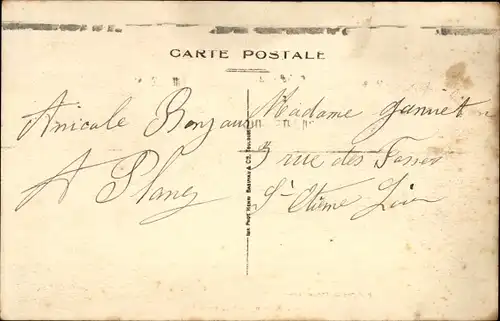 CARTE POSTALE
Amicale Bonjour
A Planez
Madame Janvet
3 rue des Fosses
St Etienne Loire